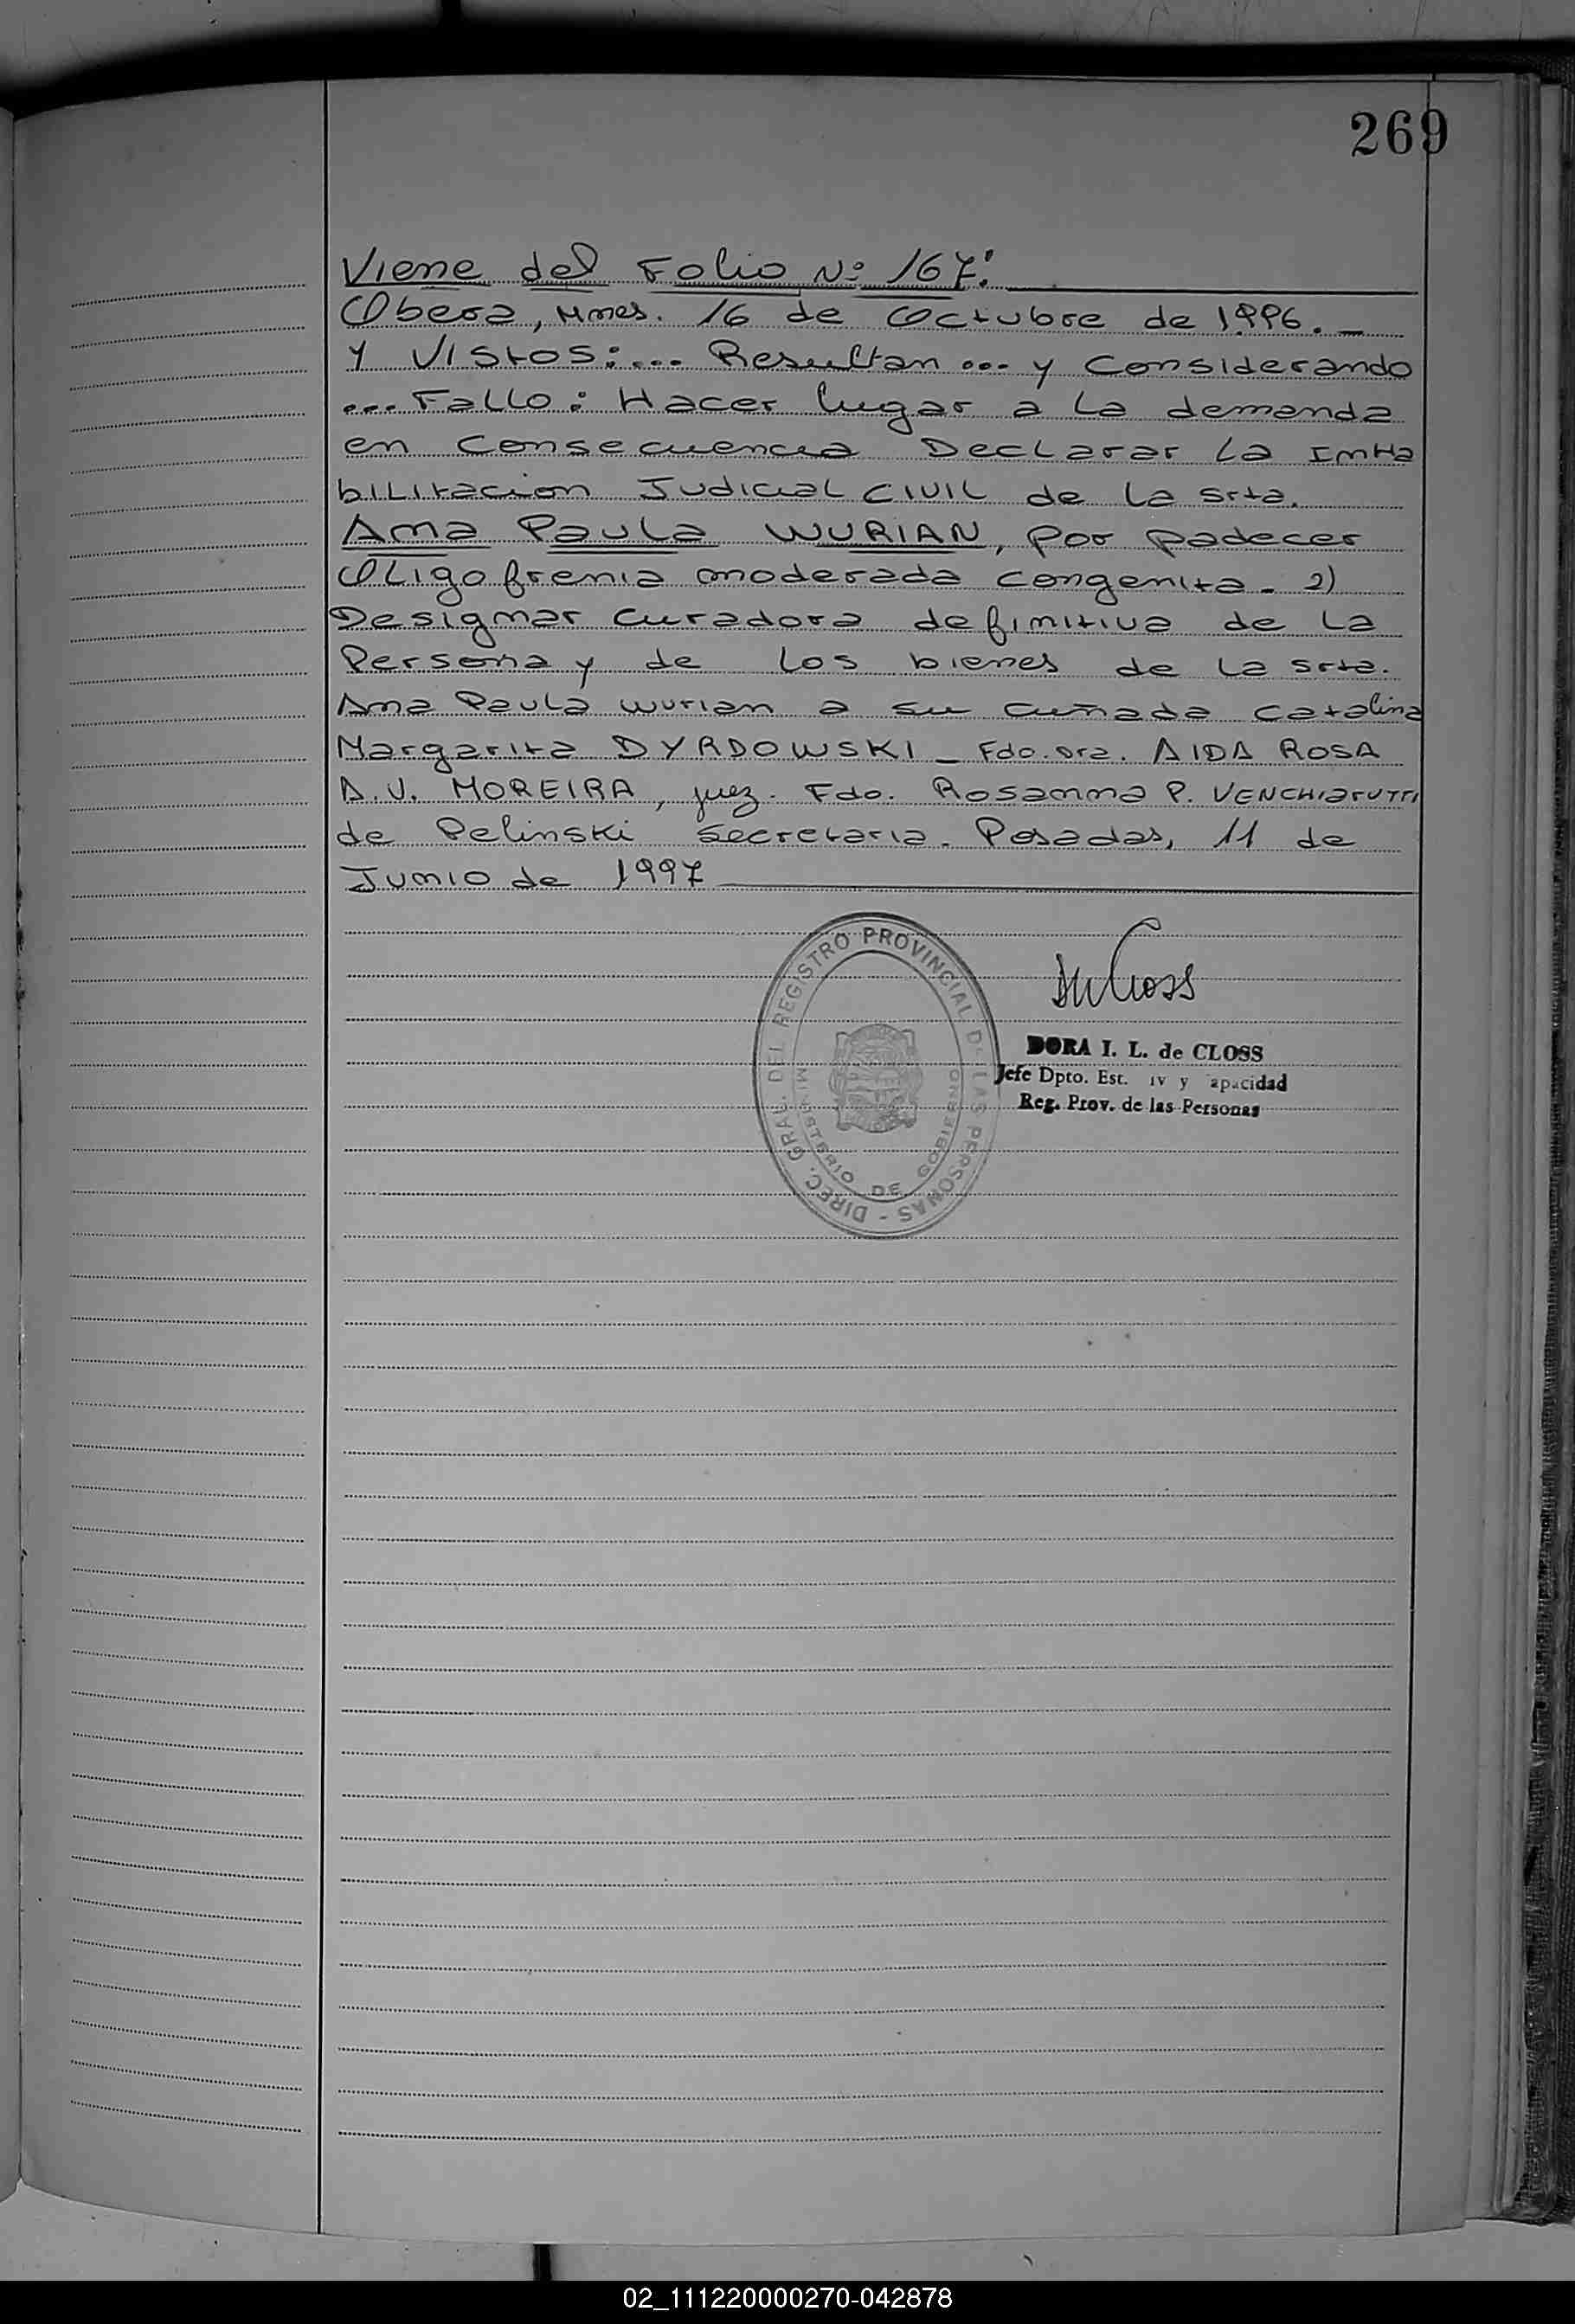 269
Viene del Folio Nº 167:
Obera, Mnes. 16 de Octubre de 1996. —
Y VISTOS:... Resultan ... y Considerando
... Fallo: Hacer lugar a la demanda
en Consecuencia Declarar La InHa
bilitacion Judicial CIVIL de la Srta.
Ana Paula WURIAN, por padecer
Oligofrenia moderada congenita. 2)
Designar Curadora definitiva de La
Persona y de Los bienes de la Srta.
Ana Paula Wurian a su cuñada Catalina
Margarita DYRDOWSKI _ Fdo. Dra. AIDA ROSA
A.V. MOREIRA, juez. Fdo. Rosanna P. VENCHIARUTTI
de Pelinski Secretaria. Posadas, 11 de
Junio de 1997
DIREC. GRAL. DEL REGISTRO PROVINCIAL DE LAS PERSONAS -
MINISTERIO DE GOBIERNO
DORA I. L. de CLOSS
Jefe Dpto. Est. iv y apacidad
Reg. Prov. de las Personas
02_111220000270-042878